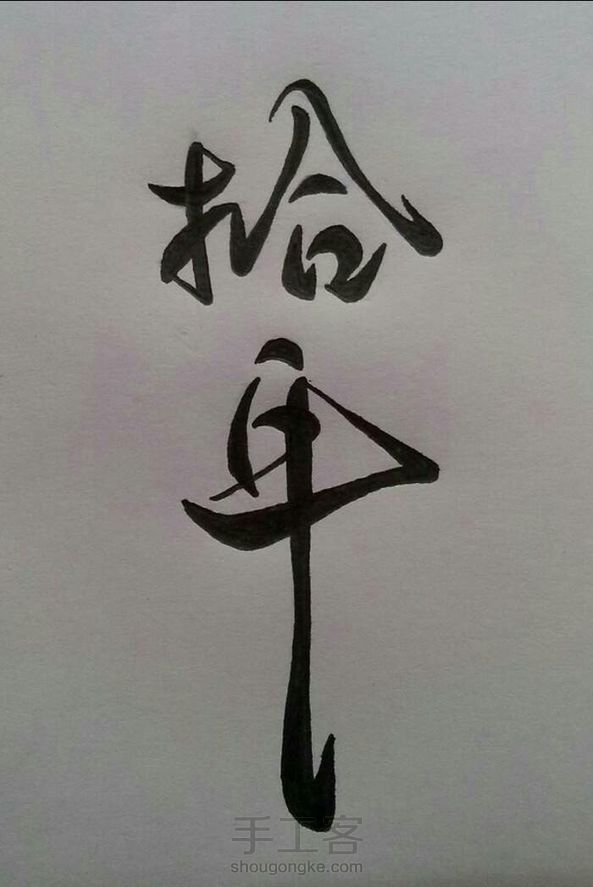 拾年
手工客
shougongke.com